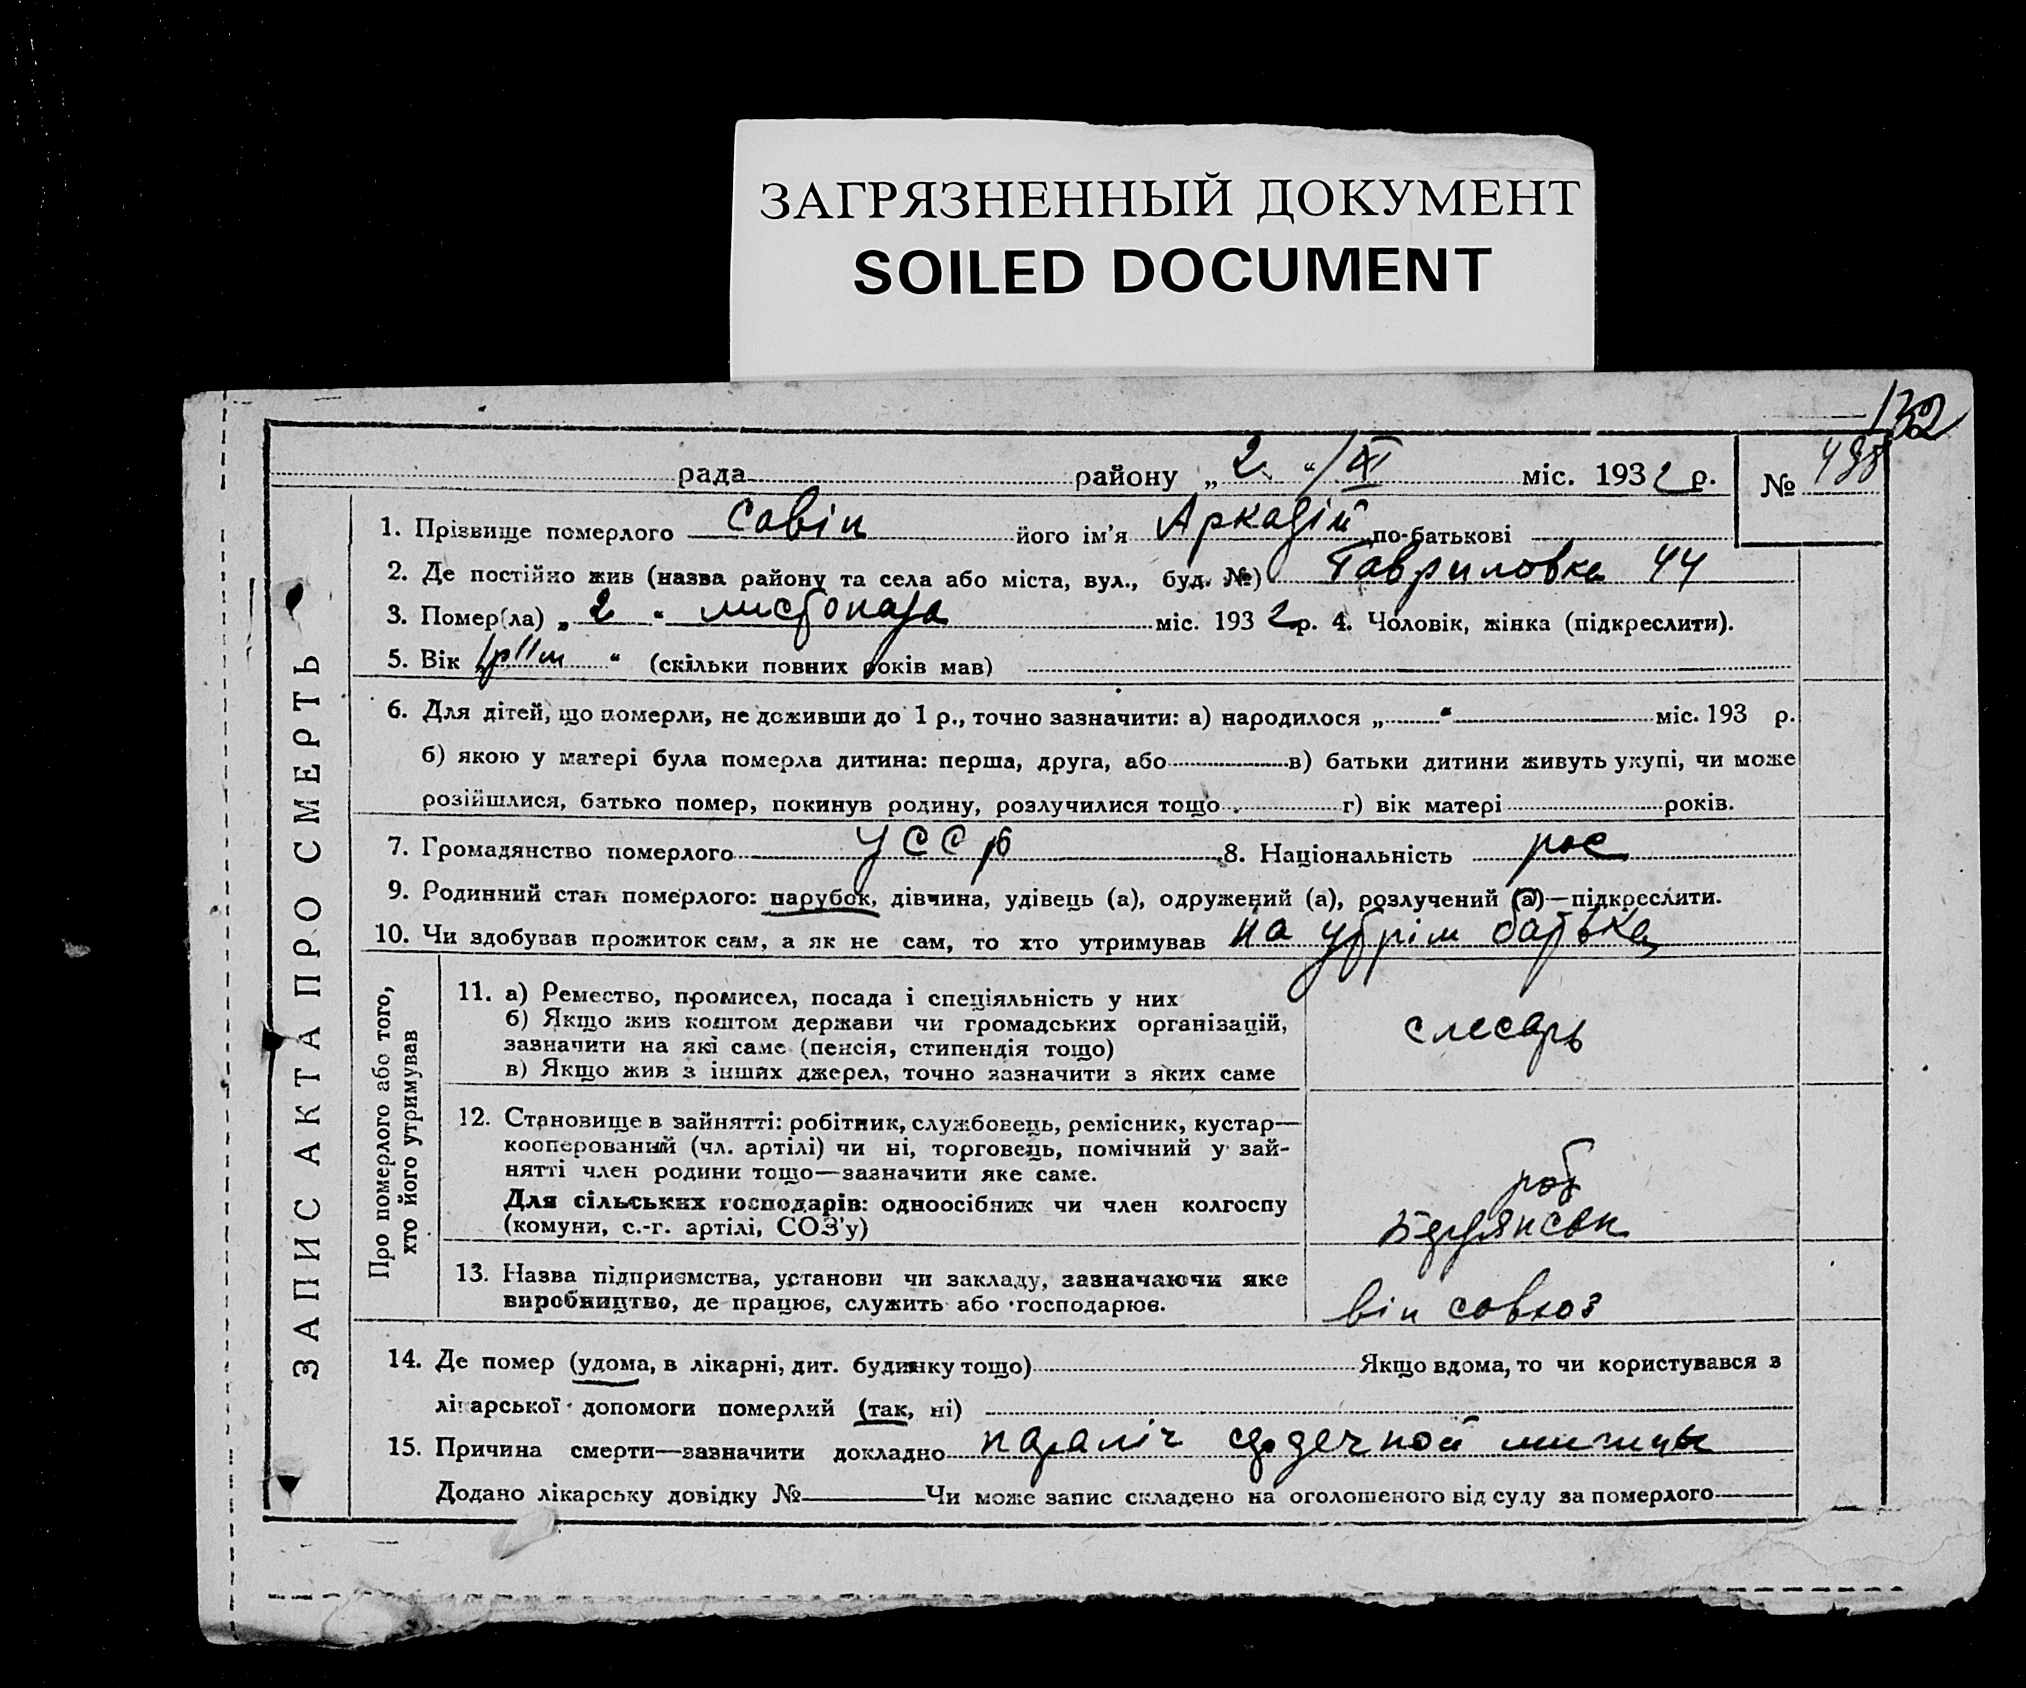 ЗАГРЯЗНЕННЫЙ ДОКУМЕНТ
SOILED DOCUMENT
132
рада району „ 2 “ / XI міс. 1932 р. №
1. Прізвище померлого Савін його ім’я Аркадій по-батькові
2. Де постійно жив (назва району та села або міста, вул., буд. №) Гавриловка 44
3. Помер(ла) „ 2 “ листопада міс. 1932 р. 4. Чоловік, жінка (підкреслити).
5. Вік 1р 11м “ (скільки повних років мав)
6. Для дітей, що померли, не доживши до 1 р., точно зазначити: а) народилося „ “ міс. 193 р.
б) якою у матері була померла дитина: перша, друга, або в) батьки дитини живуть укупі, чи може
розійшлися, батько помер, покинув родину, розлучилися тощо г) вік матері років.
7. Громадянство померлого УССР 8. Національність рос
9. Родинний стан померлого: парубок, дівчина, удівець (а), одружений (а), розлучений (а)—підкреслити.
10. Чи здобував прожиток сам, а як не сам, то хто утримував на утрім батька
ЗАПИС АКТА ПРО СМЕРТЬ
Про померлого або того,
хто його утримував
11. а) Ремество, промисел, посада і спеціяльність у них
б) Якщо жив коштом держави чи громадських організацій,
зазначити на які саме (пенсія, стипендія тощо)
в) Якщо жив з інших джерел, точно зазначити з яких саме
слесарь
12. Становище в зайнятті: робітник, службовець, ремісник, кустар—
кооперований (чл. артілі) чи ні, торговець, помічний у зай-
нятті член родини тощо—зазначити яке саме.
Для сільських господарів: одноосібник чи член колгоспу
(комуни, с.-г. артілі, СОЗ’у)
роб
13. Назва підприємства, установи чи закладу, зазначаючи яке
виробництво, де працює, служить або господарює.
він совхоз
14. Де помер (удома, в лікарні, дит. будинку тощо) Якщо вдома, то чи користувався з
лікарської допомоги померлий (так, ні)
15. Причина смерти—зазначити докладно параліч сърдечной мишцы
Додано лікарську довідку № Чи може запис складено на оголошеного від суду за померлого